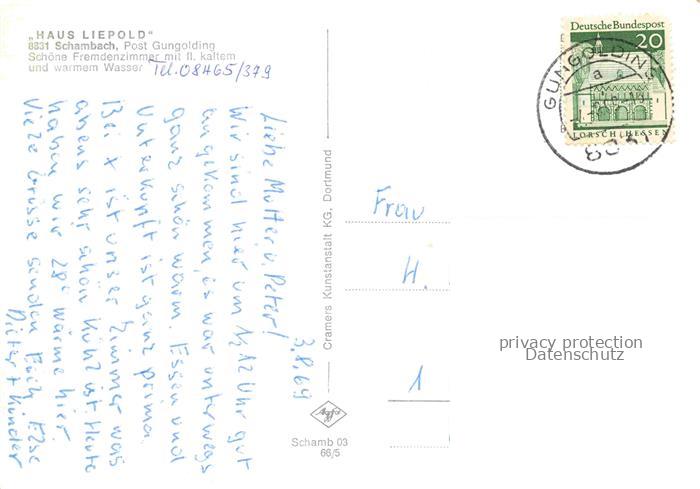 „HAUS LIEPOLD“
8831 Schambach, Post Gungolding
Schöne Fremdenzimmer mit fl. kaltem
und warmem Wasser Tel. 08465/379
3.8.69
Liebe Mutter u. Peter!
Wir sind hier um 1/2 12 Uhr gut
angekommen, es war unterwegs
ganz schön warm. Essen und
Unterkunft ist ganz prima.
Bei x ist unser Zimmer was
abens sehr schön kühl ist. Heute
haben wir 28° wärme hier.
Viele Grüsse senden Euch Else
Dieter + Kinder
Cramers Kunstanstalt KG, Dortmund
Agfa
Schamb 03
66/5
Deutsche Bundespost
20
LORSCH/HESSEN
GUNGOLDING
a
8831
Frau
H.
1
privacy protection
Datenschutz